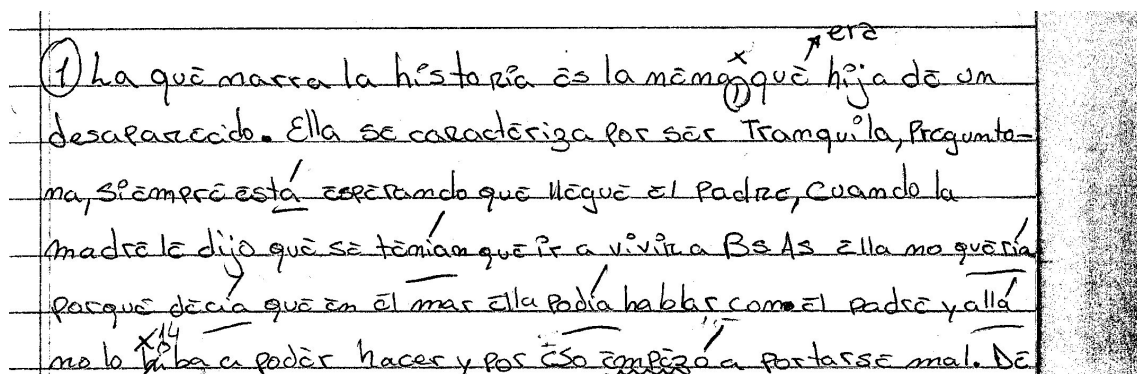 era
x
① La que narra la historia es la nena ① que hija de un
desaparecido. Ella se caracteriza por ser Tranquila, Pregunto-
na, siempre está esperando que llegue el Padre, cuando la
madre le dijo que se tenían que ir a vivir a Bs As ella no quería
porque decía que en el mar ella podía hablar con el padre y allá
x14
no lo hiba a poder hacer y por eso empezó a portarse mal. De